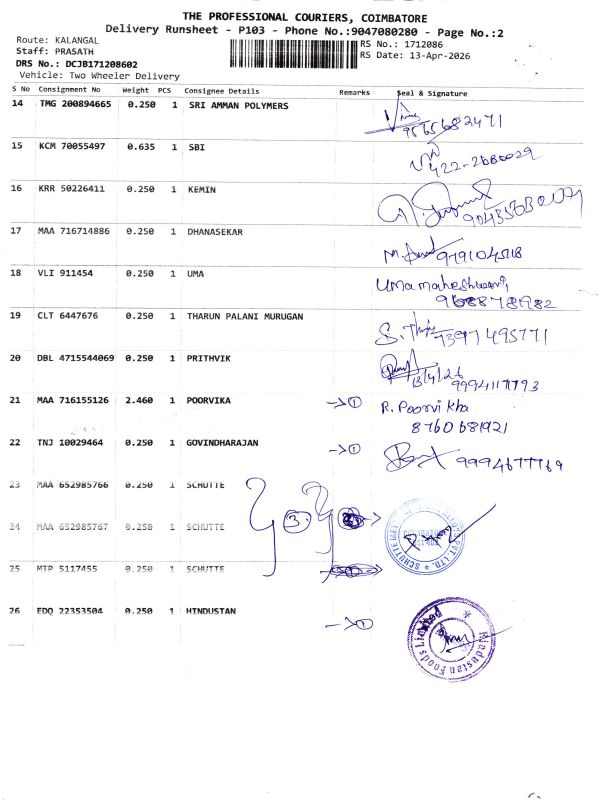 THE PROFESSIONAL COURIERS, COIMBATORE
Delivery Runsheet - P103 - Phone No.:9047080280 - Page No.:2
Route: KALANGAL
Staff: PRASATH
DRS No.: DCJB171208602
Vehicle: Two Wheeler Delivery
RS No.: 1712086
RS Date: 13-Apr-2026
S No Consignment No Weight PCS Consignee Details Remarks Seal & Signature
14 TMG 200894665 0.250 1 SRI AMMAN POLYMERS
9565682471
15 KCM 70055497 0.635 1 SBI
422-2680029
16 KRR 50226411 0.250 1 KEMIN
17 MAA 716714886 0.250 1 DHANASEKAR
9791045118
18 VLI 911454 0.250 1 UMA
Umamaheshwari
9688718982
19 CLT 6447676 0.250 1 THARUN PALANI MURUGAN
7397495771
20 DBL 4715544069 0.250 1 PRITHVIK
13/4/26
9994117793
21 MAA 716155126 2.460 1 POORVIKA → 1 R. Poorvikha
8760681921
22 TNJ 10029464 0.250 1 GOVINDHARAJAN → 1 9994677769
23 MAA 652985766 0.250 1 SCHUTTE
24 MAA 652985767 0.250 1 SCHUTTE 3
25 MTP 5117455 0.250 1 SCHUTTE
26 EDQ 22353504 0.250 1 HINDUSTAN → 1
Hindustan Foods Limited